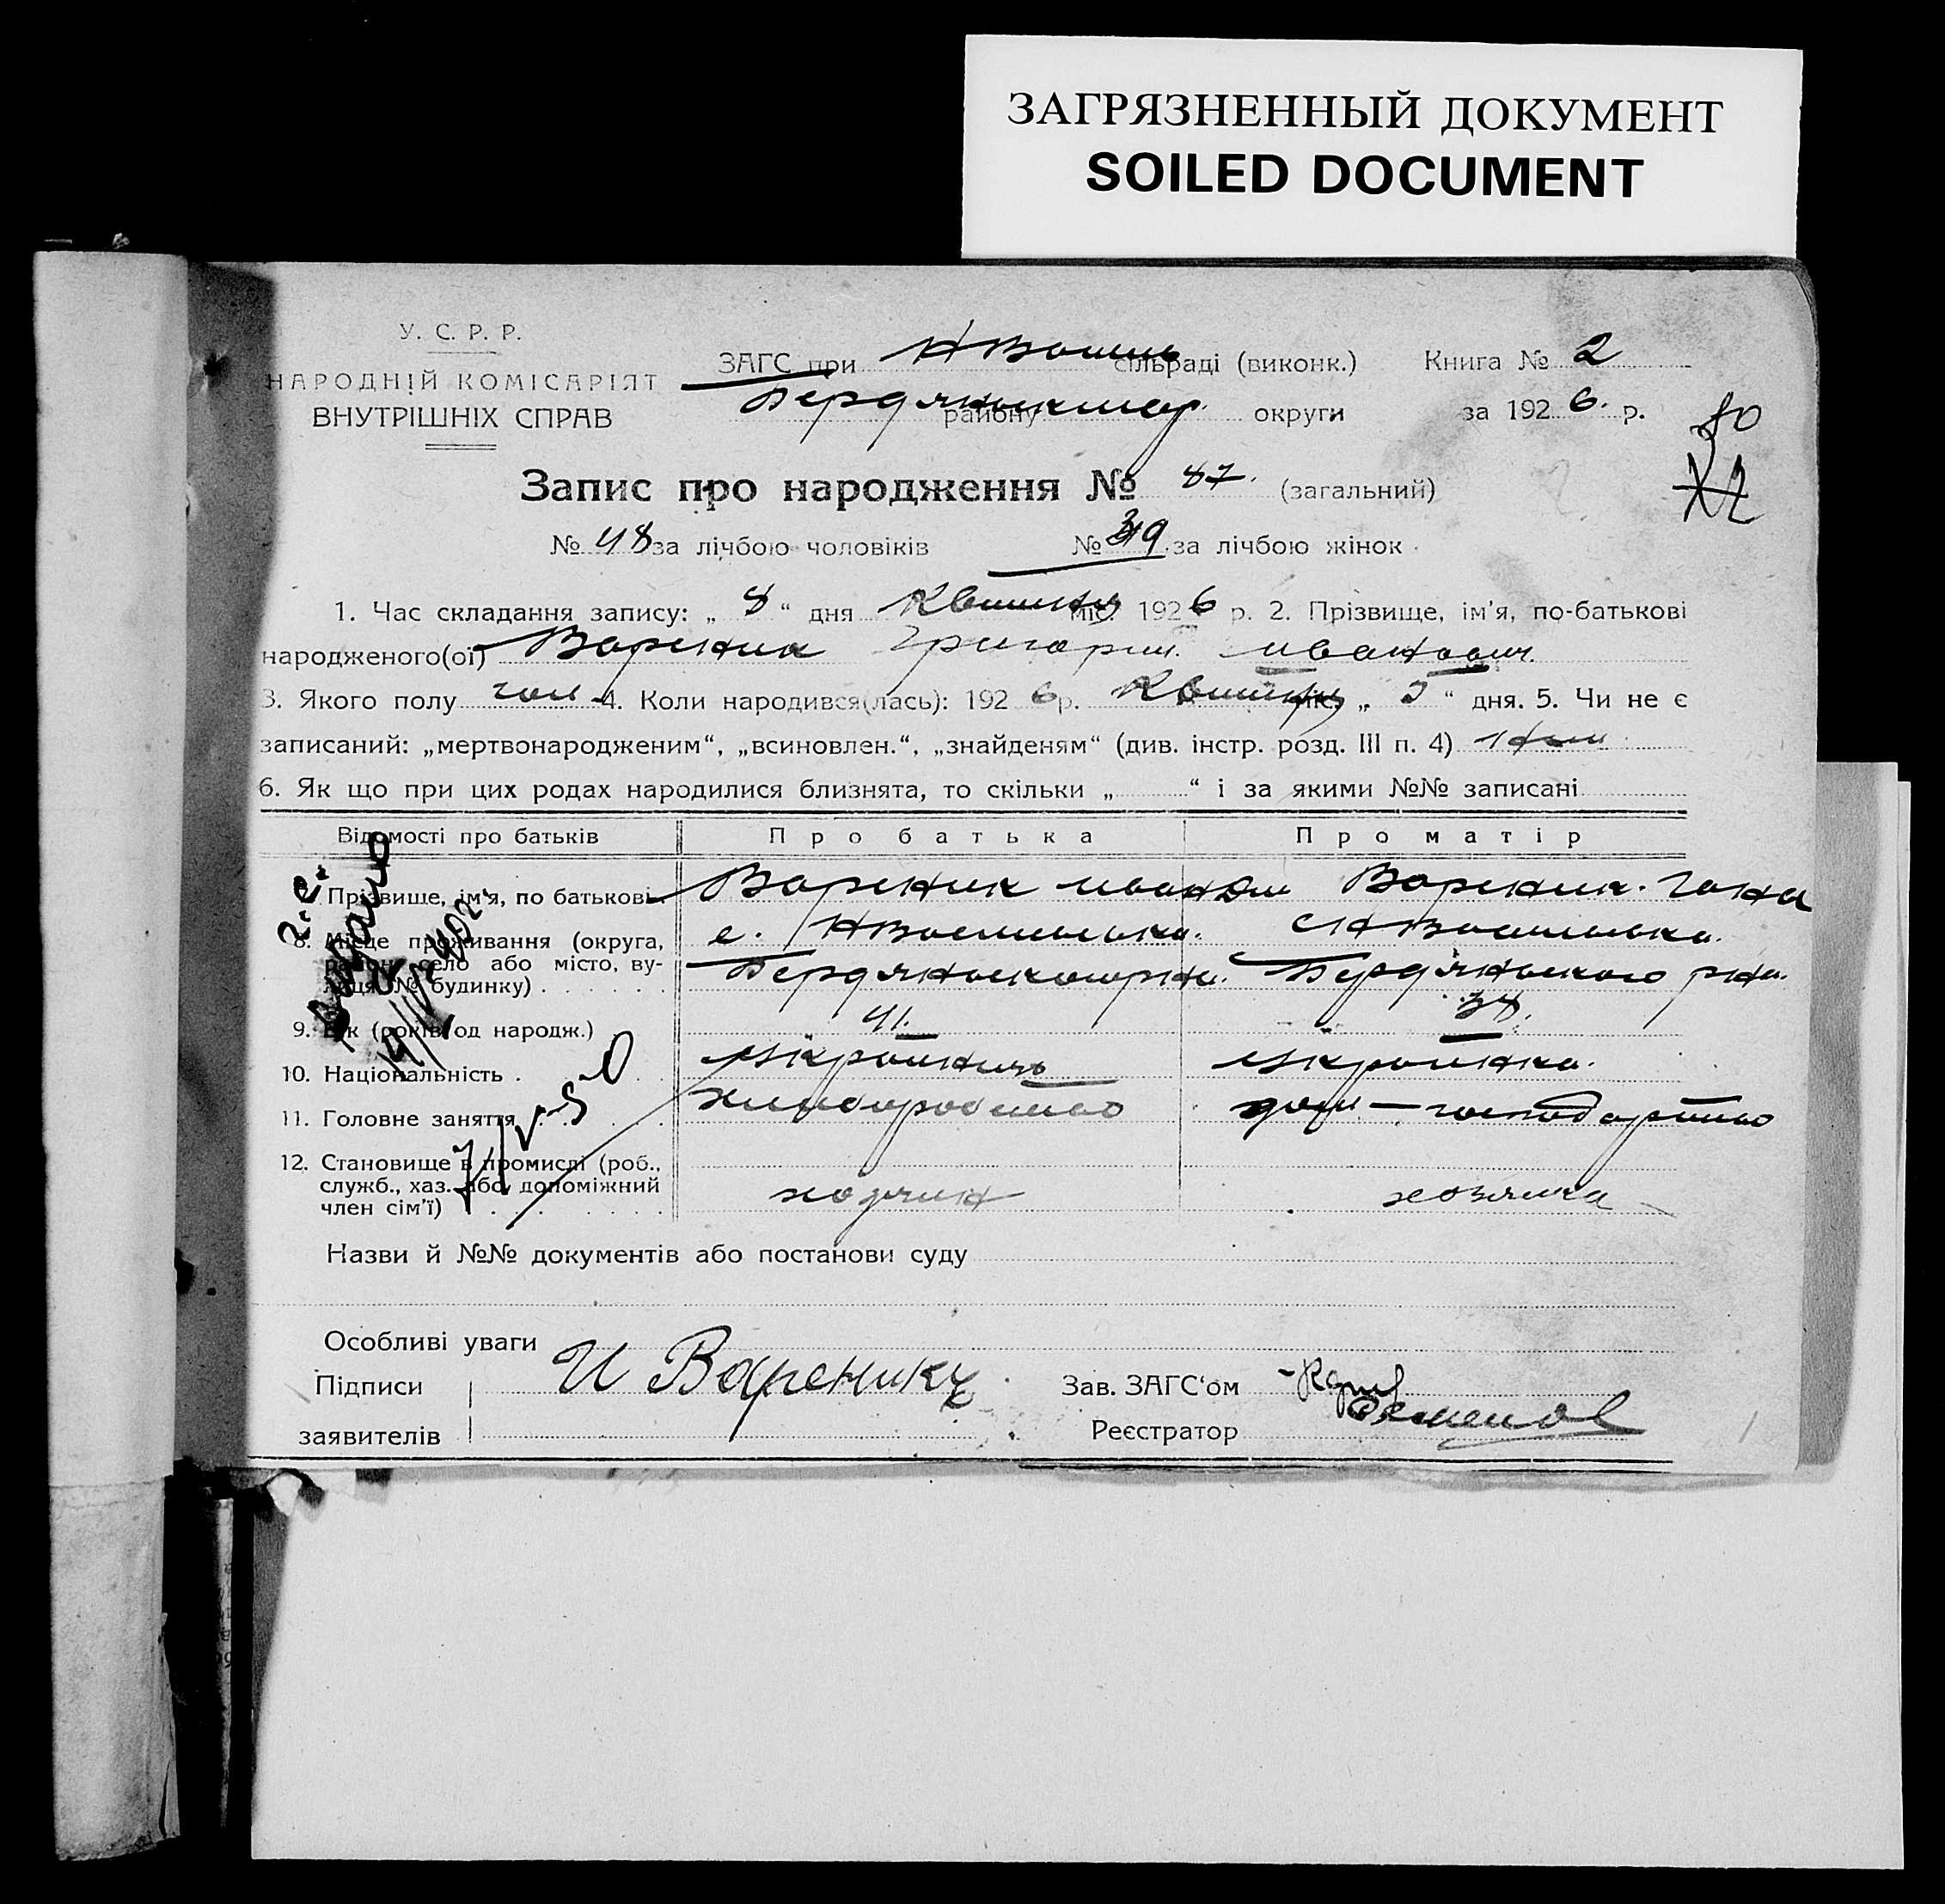 ЗАГРЯЗНЕННЫЙ ДОКУМЕНТ
SOILED DOCUMENT
У. С. Р. Р.
НАРОДНІЙ КОМІСАРІЯТ
ВНУТРІШНІХ СПРАВ
ЗАГС при сільраді (виконк.)
району округи
Книга № 2
за 1926. р.
80
Запис про народження № 87. (загальний)
№ 48 за лічбою чоловіків № 39 за лічбою жінок
1. Час складання запису: „ 8 “ дня Квітня міс. 1926 р. 2. Прізвище, ім’я, по-батькові
народженого(ої) Вареник Григорий Иванович.
3. Якого полу чол 4. Коли народився(лась): 1926 р. Квітня міс. „ 5 “ дня. 5. Чи не є
записаний: „мертвонародженим“, „всиновлен.“, „знайденям“ (див. інстр. розд. III п. 4)
6. Як що при цих родах народилися близнята, то скільки „ “ і за якими №№ записані
Відомості про батьків Про батька Про матір
7. Прізвище, ім’я, по батькові. Вареник Иван Вареник. Гана
8. Місце проживання (округа, район, село або місто, вулиця, № будинку) с.
Бердянського рна. Бердянського рна.
9. Вік (років од народж.) 41. 38.
10. Національність Українець Українка.
11. Головне заняття хлиборобство дом — господарство
12. Становище в промислі (роб., служб., хаз. або допоміжний член сім’ї) хозяин хозяйка
Назви й №№ документів або постанови суду
Особливі уваги
Підписи
заявителів
И Вареникъ
Зав. ЗАГС‘ом
Реєстратор